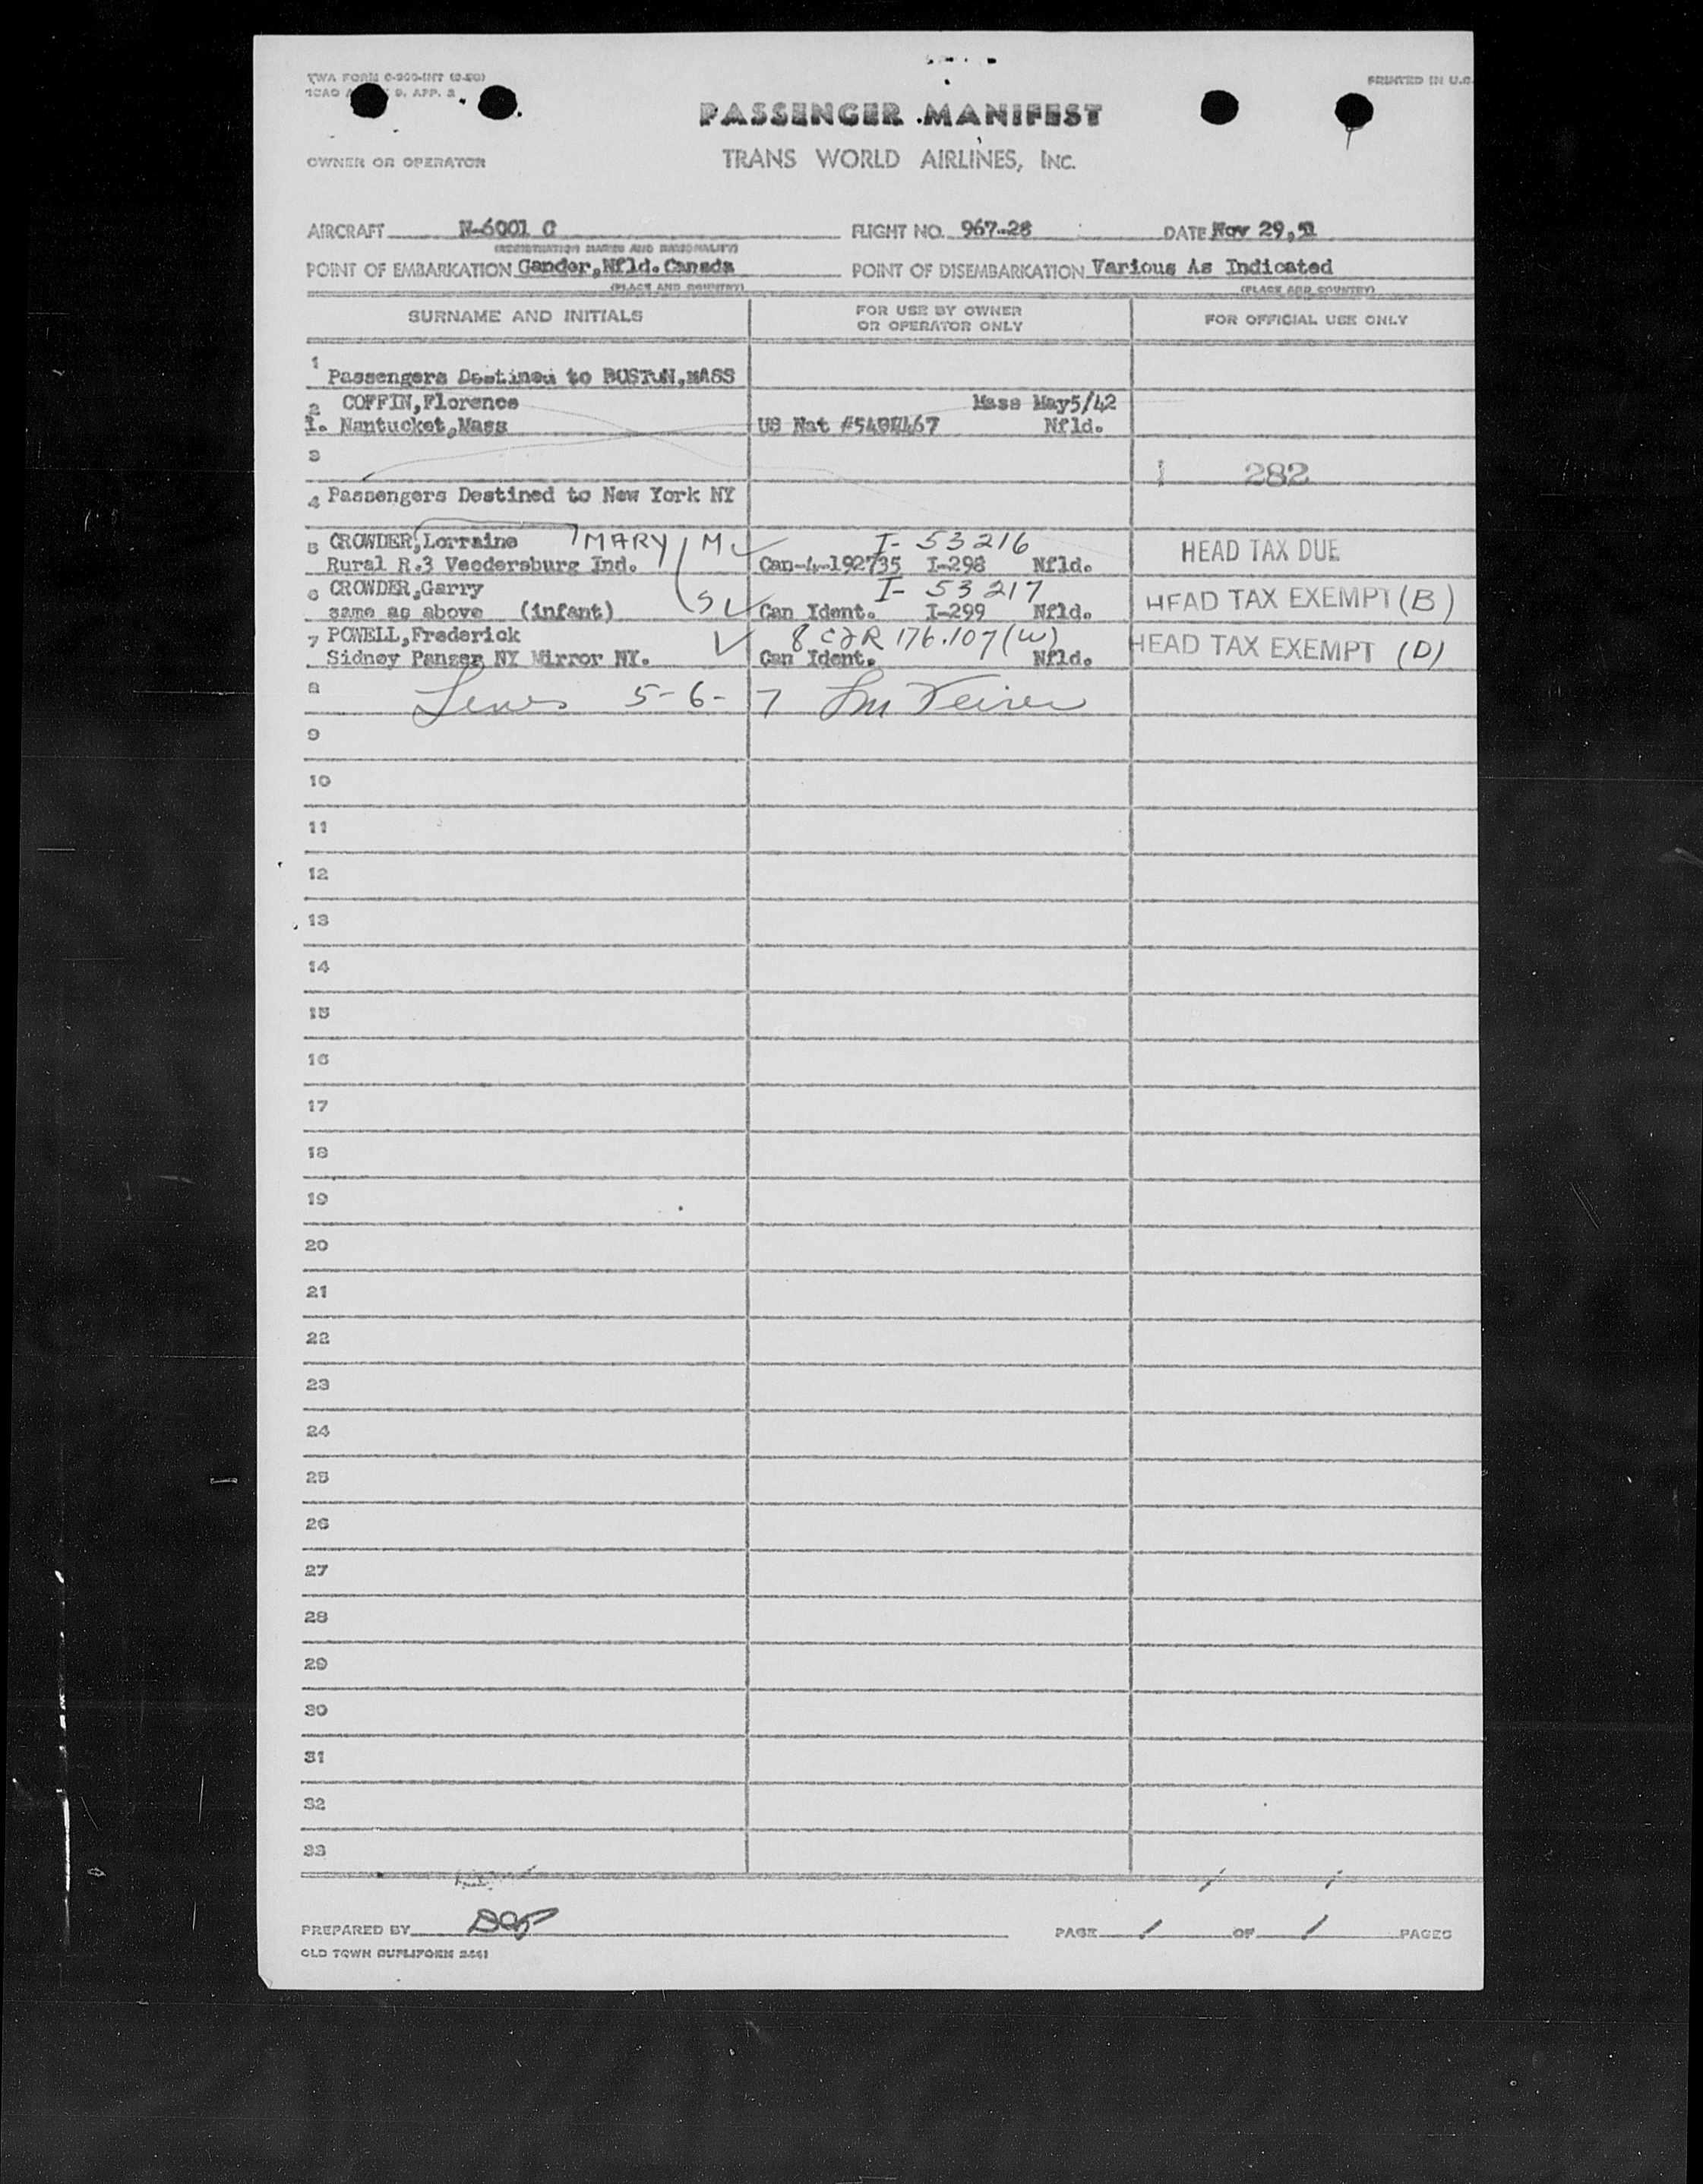 TWA FORM C-900-INT
9, APP. 2
PRINTED IN U.S.
PASSENGER MANIFEST
OWNER OR OPERATOR
TRANS WORLD AIRLINES, INC.
AIRCRAFT N-6001 C FLIGHT NO. 967-28 DATE Nov 29,51
(REGISTRATION MARKS AND NATIONALITY)
POINT OF EMBARKATION Gander,Nfld.Canada POINT OF DISEMBARKATION Various As Indicated
(PLACE AND COUNTRY) (PLACE AND COUNTRY)
SURNAME AND INITIALS FOR USE BY OWNER OR OPERATOR ONLY FOR OFFICIAL USE ONLY
1 Passengers Destined to BOSTON,MASS
2 COFFIN,Florence Mass May5/42
1. Nantucket,Mass US Nat Nfld.
3
282
4 Passengers Destined to New York NY
5 CROWDER,Lorraine MARY M I-53216 HEAD TAX DUE
Rural R.3 Veedersburg Ind. Can-4-192735 I-298 Nfld.
6 CROWDER,Garry S I-53217 HEAD TAX EXEMPT (B)
same as above (infant) Can Ident. I-299 Nfld.
7 POWELL,Frederick 8 CFR 176.107(w) HEAD TAX EXEMPT (D)
Sidney Panzer NY Mirror NY. Can Ident. Nfld.
8 5-6-7
9
10
11
12
13
14
15
16
17
18
19
20
21
22
23
24
25
26
27
28
29
30
31
32
33
PREPARED BY PAGE 1 OF 1 PAGES
OLD TOWN DUPLIFORM 2461